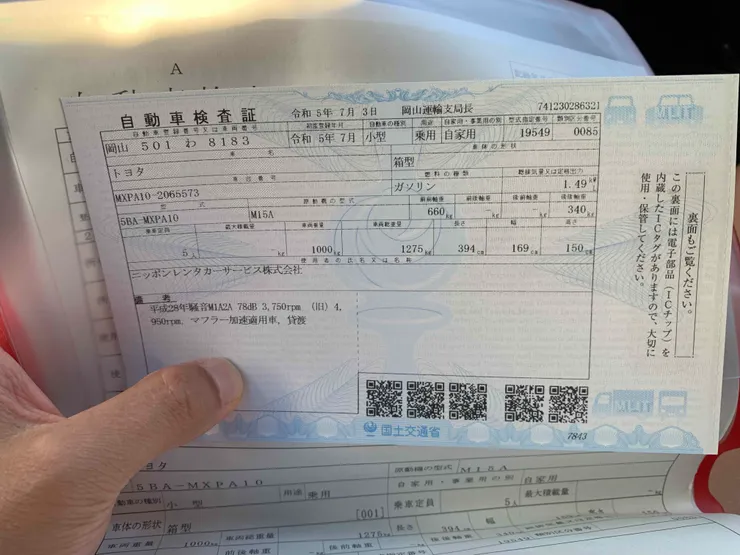 A
自動車検査証
令和 5年 7月 3日
岡山運輸支局長
741230286321
自動車登録番号又は車両番号
初度登録年月
自動車の種別
用途
自家用・事業用の別
型式指定番号
類別区分番号
岡山 501 わ 8183
令和 5年 7月
小型
乗用
自家用
19549
0085
車名
車体の形状
トヨタ
箱型
車台番号
燃料の種類
総排気量又は定格出力
MXPA10-2065573
ガソリン
1.49
型式
原動機の型式
前前軸重
前後軸重
後前軸重
後後軸重
5BA-MXPA10
M15A
660 kg
- kg
- kg
340 kg
乗車定員
最大積載量
車両重量
車両総重量
長さ
幅
高さ
5人
- kg
1000 kg
1275 kg
394 cm
169 cm
150 cm
使用者の氏名又は名称
ニッポンレンタカーサービス株式会社
備考
平成28年騒音M1A2A 78dB 3,750rpm (旧) 4,
950rpm, マフラー加速適用車、貸渡
裏面もご覧ください。
この裏面には電子部品(ICチップ)を
内蔵したICタグがありますので、大切に
使用・保管してください。
MLIT
国土交通省
7843
トヨタ
原動機の型式
M15A
5BA-MXPA10
自家用・事業用の別
自家用
自動車の種別
小型
用途
乗用
乗車定員
5人
最大積載量
[001]
車体の形状
箱型
車両総重量
1275kg
長さ
394 cm
幅
車両重量
1000kg
前前軸重
後前軸重